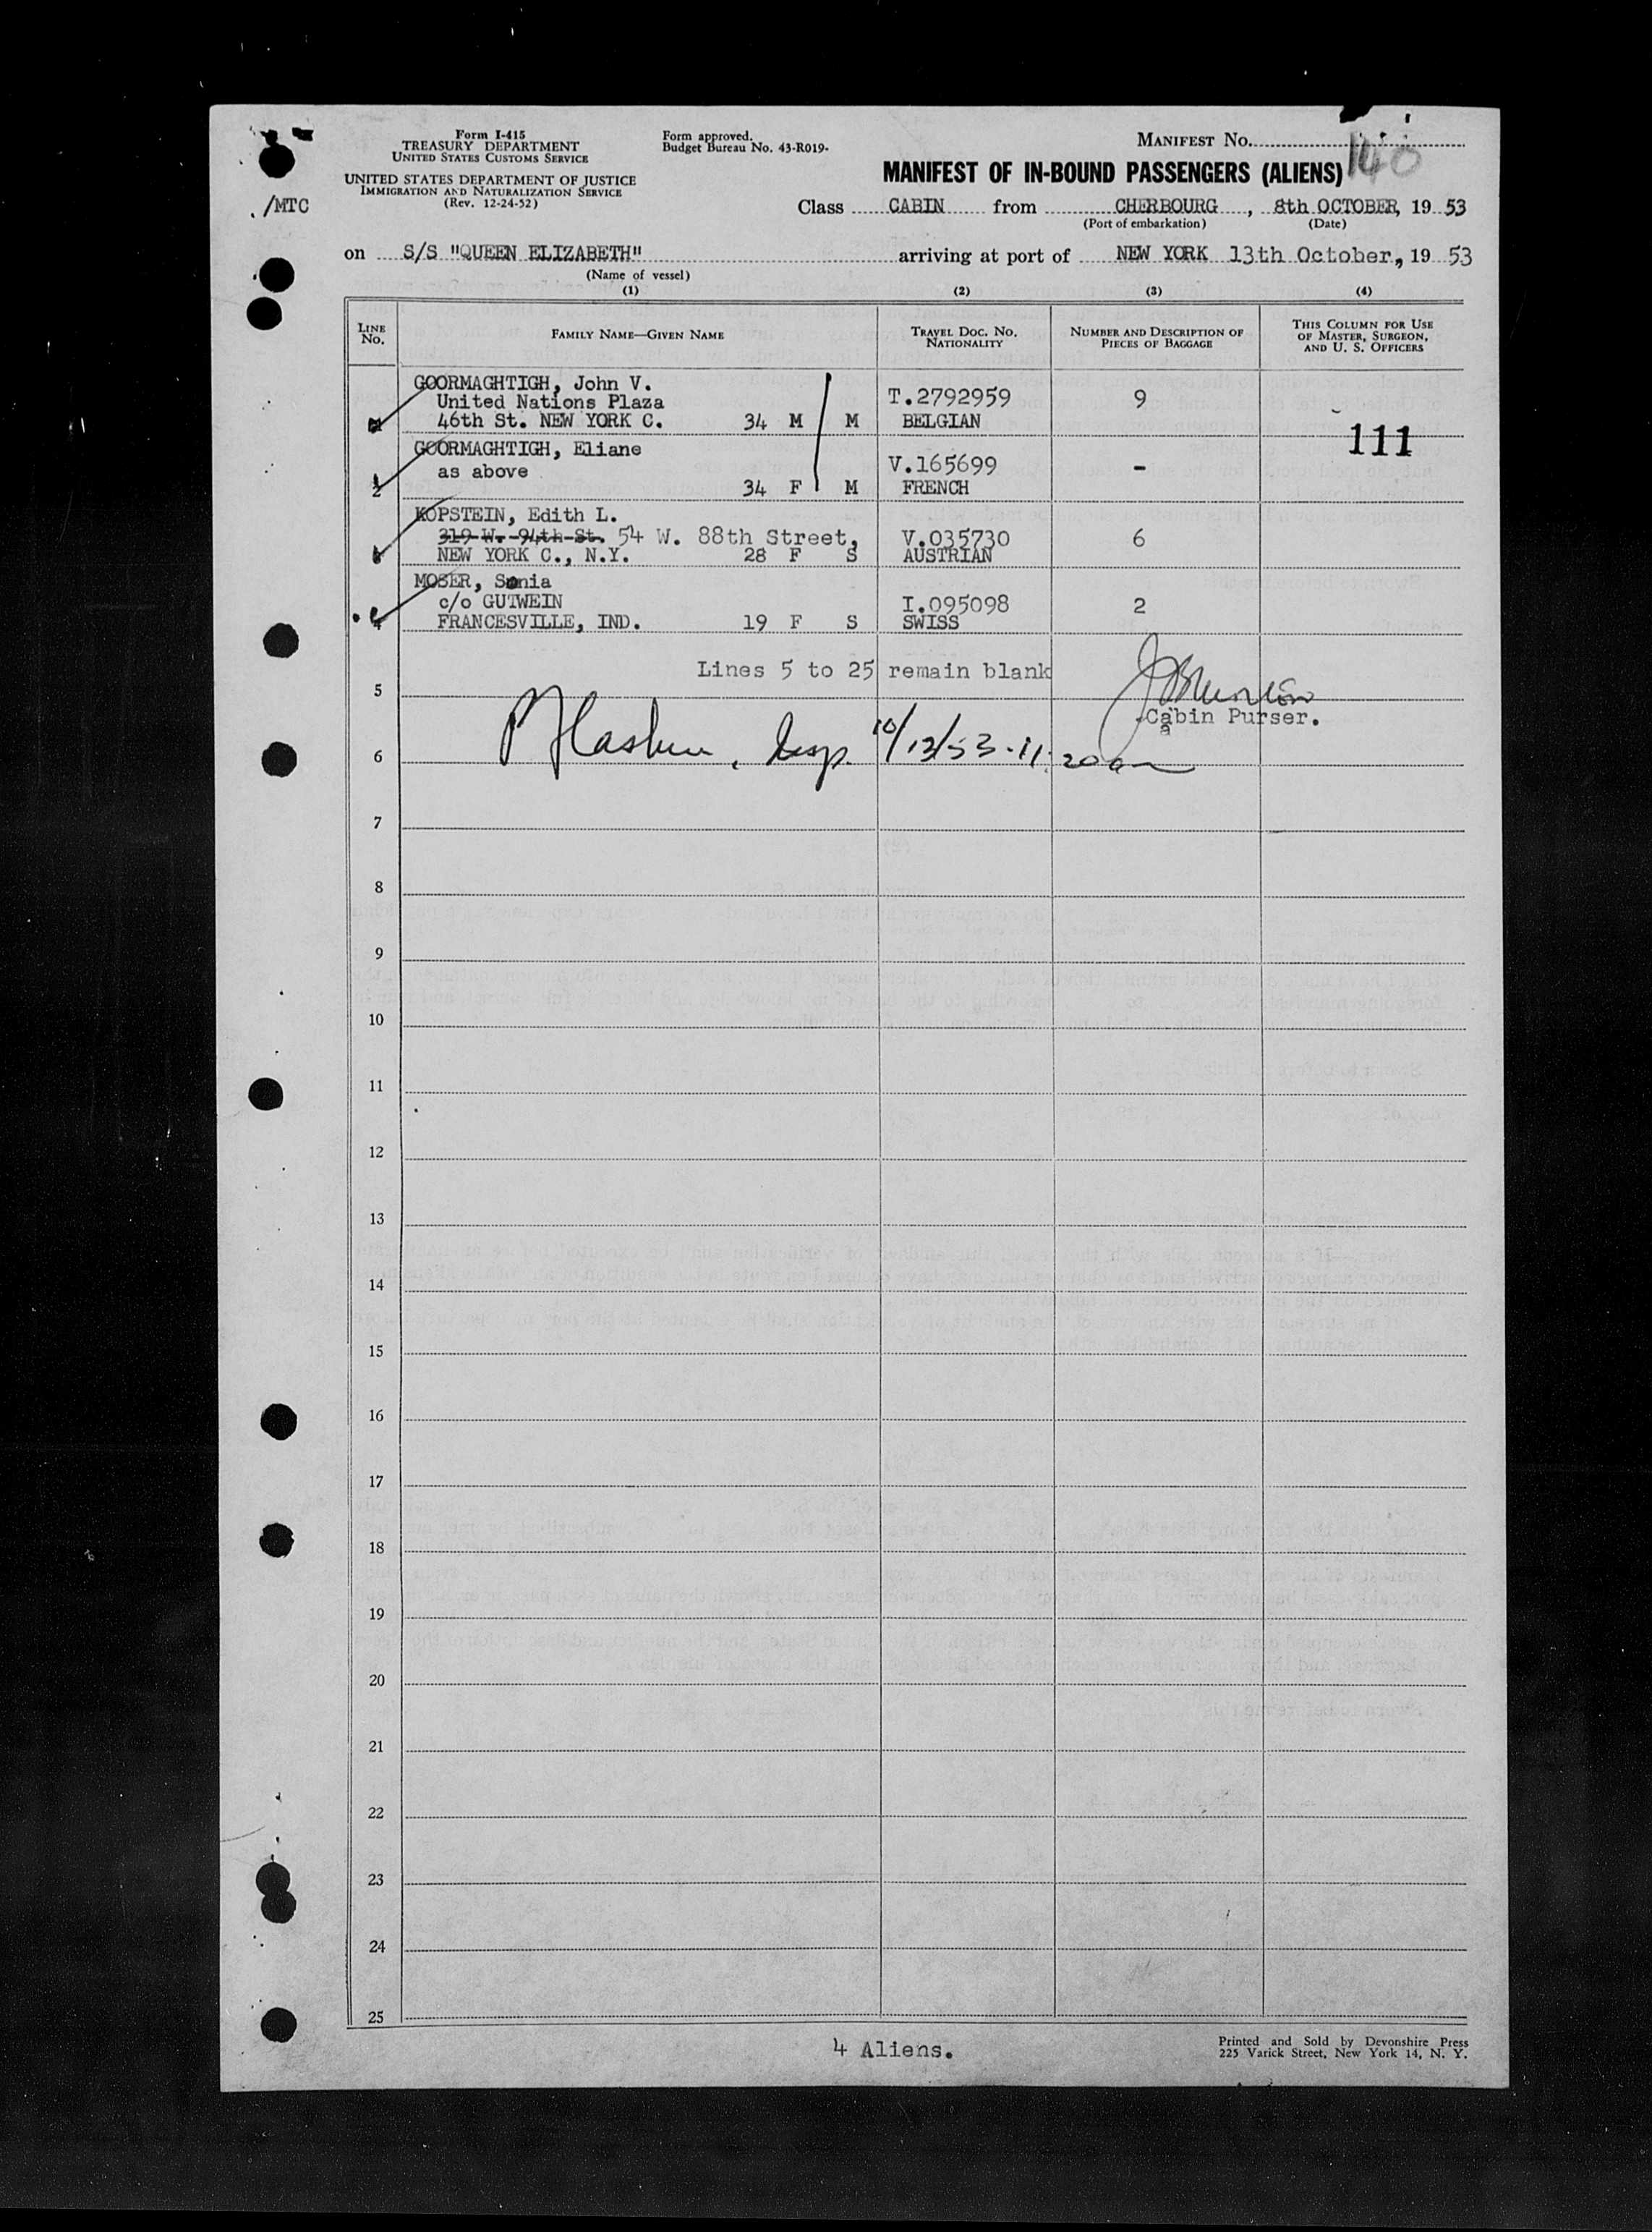 Form I-415
TREASURY DEPARTMENT
UNITED STATES CUSTOMS SERVICE
UNITED STATES DEPARTMENT OF JUSTICE
IMMIGRATION AND NATURALIZATION SERVICE
(Rev. 12-24-52)
Form approved.
Budget Bureau No. 43-R019-
MANIFEST No.
140
MANIFEST OF IN-BOUND PASSENGERS (ALIENS)
/MTC
Class CABIN from CHERBOURG, 8th OCTOBER, 19 53
(Port of embarkation) (Date)
on S/S "QUEEN ELIZABETH" arriving at port of NEW YORK 13th October, 19 53
(Name of vessel)
(1) (2) (3) (4)
LINE No. FAMILY NAME—GIVEN NAME TRAVEL DOC. NO. NATIONALITY NUMBER AND DESCRIPTION OF PIECES OF BAGGAGE THIS COLUMN FOR USE OF MASTER, SURGEON, AND U. S. OFFICERS
GOORMAGHTIGH, John V.
United Nations Plaza T.2792959 9
46th St. NEW YORK C. 34 M M BELGIAN
111
GOORMAGHTIGH, Eliane
as above V.165699 -
2 34 F M FRENCH
KOPSTEIN, Edith L.
319 W. 94th St. 54 W. 88th Street, V.035730 6
NEW YORK C., N.Y. 28 F S AUSTRIAN
MOSER, Sonia
c/o GUTWEIN I.095098 2
4 FRANCESVILLE, IND. 19 F S SWISS
Lines 5 to 25 remain blank
5
Cabin Purser.
6 10/13/53 - 11:20 am
7
8
9
10
11
12
13
14
15
16
17
18
19
20
21
22
23
24
25
4 Aliens.
Printed and Sold by Devonshire Press
225 Varick Street, New York 14, N. Y.